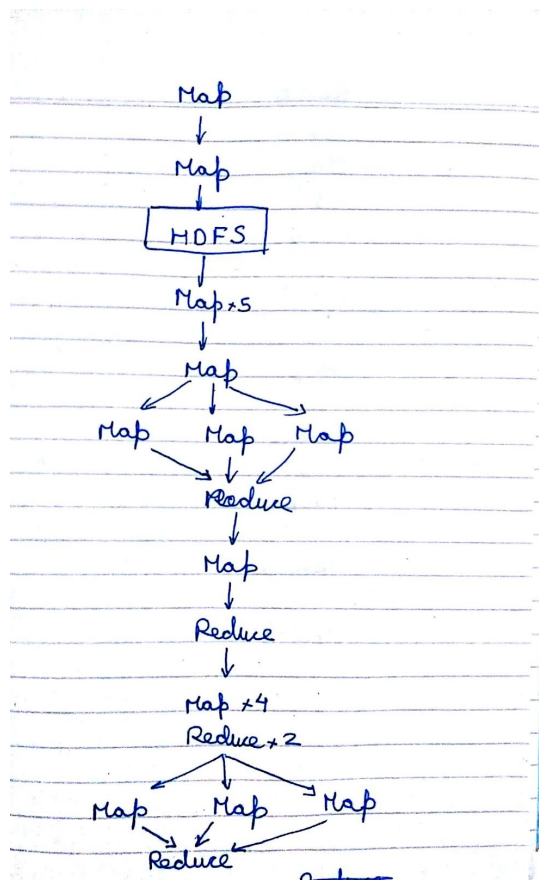 Map
Map
HDFS
Map×5
Map
Map Map Map
Reduce
Map
Reduce
Map ×4
Reduce×2
Map Map Map
Reduce